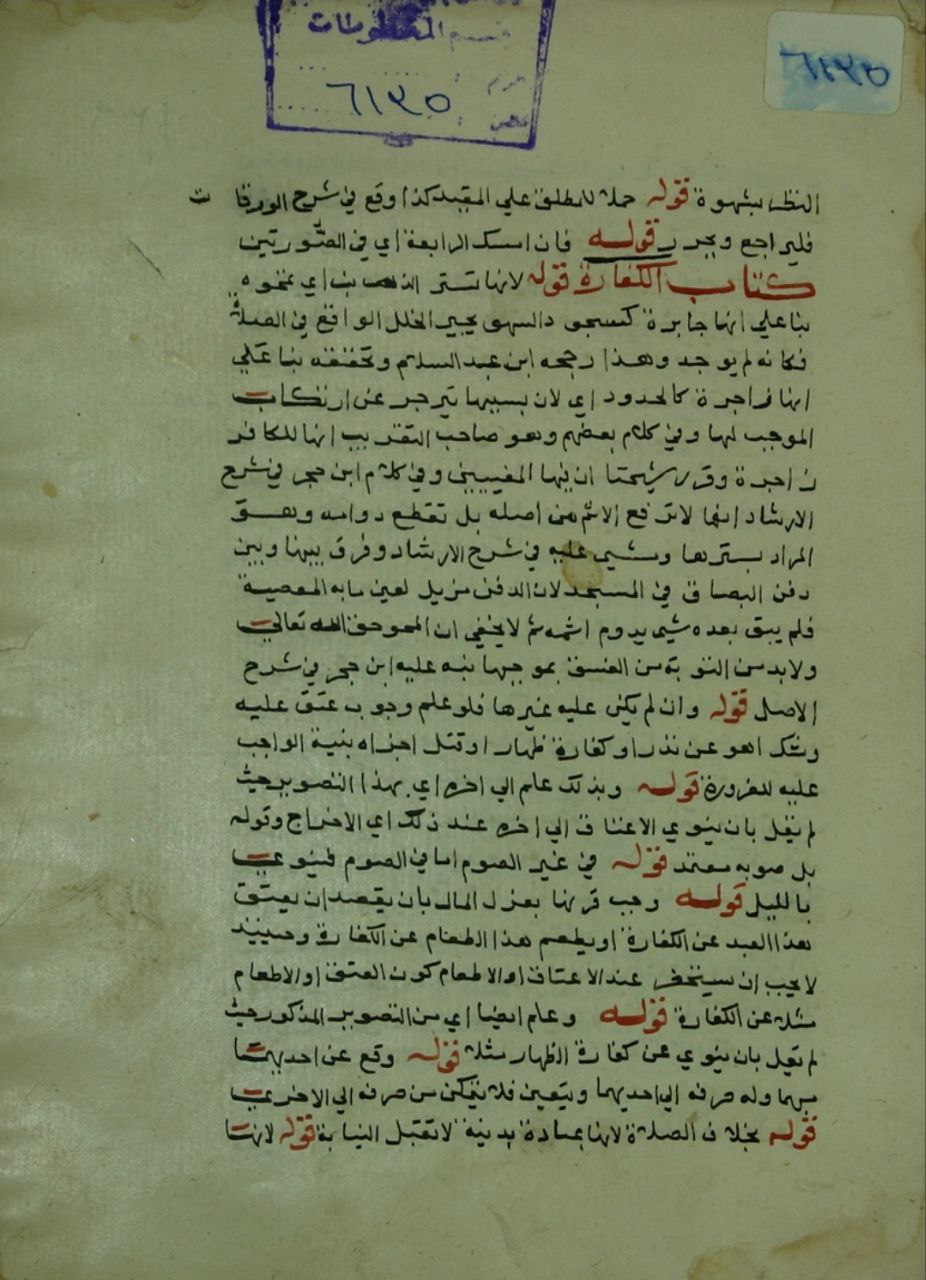 قسم المخطوطات
٦١٣٥
٦١٣٥
النظر بشهوة قوله حملا للمطلق علي المقيد كذا وقع في شرح الورقات
فليراجع ويحرر قوله فان امسك الرابعة اي في الصورتين
كتاب الكفارة قوله لانها تستر الذنب اي تمحوه
بنا علي انها جابرة كسجود السهو يجبر الخلل الواقع في الصلاة
فكانه لم يوجد وهذا رجحه ابن عبد السلام وتخففه بنا علي
انها زاجرة كالحدود اي لان بسببها ينزجر عن ارتكاب
الموجب لها وفي كلام بعضهم وهو صاحب التقريب انها للكافر
زاجرة وقرر شيخنا ان فيها المعنيين وفي كلام ابن حجر في شرح
الارشاد انها لا ترفع الاثم من اصله بل تقطع دوامه وهو
المراد بسترها ومشي عليه في شرح الارشاد وفرق بينها وبين
دفن البصاق في المسجد لان الدفن مزيل لعين ما به المعصية
فلم يبق بعده شي يدوم اثمه ثم لا يخفي ان الممحو حق الله تعالي
ولا بد من التوبة من الفسق بموجبها نبه عليه ابن حجر في شرح
الاصل قوله وان لم يكن عليه غيرها فلو علم وجوب عتق عليه
وشك اهو عن نذر او كفارة ظهار او قتل اجزاه بنية الواجب
عليه للضرورة قوله وبذلك علم الي اخره اي بهذا التصوير حيث
لم يقل بان ينوي الاعتاق الي اخره عند ذلك اي الاخراج وقوله
بل صوبه معتمد قوله في غير الصوم اما في الصوم فينوي
بالليل قوله وجب قرنها بعزل المال بان يقصد ان يعتق
هذا العبد عن الكفارة او يطعم هذا الطعام عن الكفارة وحينيذ
لا يجب ان يستحضر عند الاعتاق او الاطعام كون العتق او الاطعام
مثلا عن الكفارة قوله وعلم ايضا اي من التصوير المذكور حيث
لم يقل بان ينوي عن كفارة الظهار مثلا قوله وقع عن احديهما
مبهما وله صرفه الي احديهما ويتعين فلا يتمكن من صرفه الي الاخري
قوله بخلاف الصلاة لانها عبادة بدنية لا تقبل النيابة قوله لانها